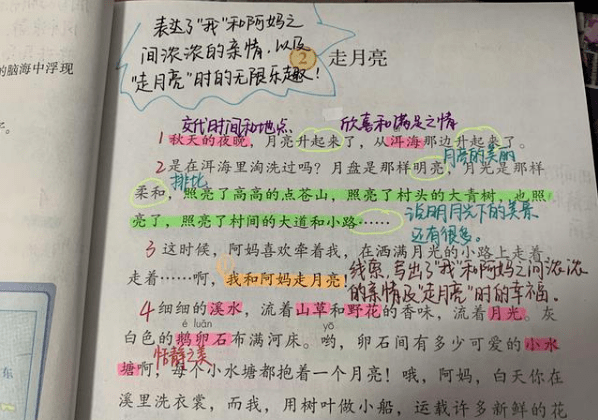 表达了"我"和阿妈之
间浓浓的亲情,以及
"走月亮"时的无限乐趣!
的脑海中浮现
2 走月亮
交代时间和地点 欣喜和满足之情
1 秋天的夜晚,月亮升起来了,从洱海那边升起来了。
月亮的美丽
2 是在洱海里淘洗过吗?月盘是那样明亮,月光是那样
排比
柔和,照亮了高高的点苍山,照亮了村头的大青树,也照
亮了,照亮了村间的大道和小路……
说明月光下的美景
还有很多。
3 这时候,阿妈喜欢牵着我,在洒满月光的小路上走着
走着……啊,我和阿妈走月亮!
线索,写出了"我"和阿妈之间浓浓
的亲情及"走月亮"时的幸福。
4 细细的溪水,流着山草和野花的香味,流着月光。灰
é luǎn yō
白色的鹅卵石布满河床。哟,卵石间有多少可爱的小水
恬静之美
塘啊,每个小水塘都抱着一个月亮!哦,阿妈,白天你在
溪里洗衣裳,而我,用树叶做小船,运载许多新鲜的花
东